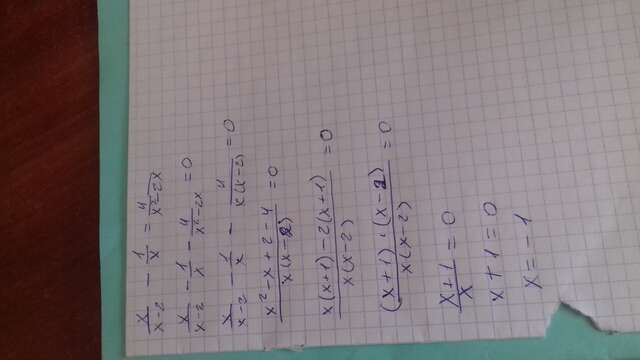 x/(x-2) - 1/x = 4/(x²-2x)
x/(x-2) - 1/x - 4/(x²-2x) = 0
x/(x-2) - 1/x - 4/(x(x-2)) = 0
(x²-x+2-4)/(x(x-2)) = 0
(x(x+1)-2(x+1))/(x(x-2)) = 0
((x+1)·(x-2))/(x(x-2)) = 0
(x+1)/x = 0
x+1=0
x=-1